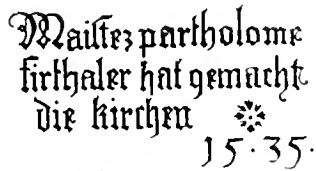 Maister partholome
firthaler hat gemacht
die kirchen
15·35·